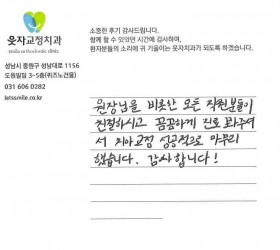 소중한 후기 감사드립니다.
함께 할 수 있었던 시간에 감사하며,
환자분들의 소리에 귀 기울이는 웃자치과가 되도록 하겠습니다.
웃자교정치과
smile orthodontic clinic
성남시 중원구 성남대로 1156
도원빌딩 3-5층(위즈노건물)
031 606 0282
letssmile.co.kr
원장님을 비롯한 모든 직원분들이
친절하시고 꼼꼼하게 진료 봐주셔
서 치아교정 성공적으로 마무리
했습니다. 감사합니다!